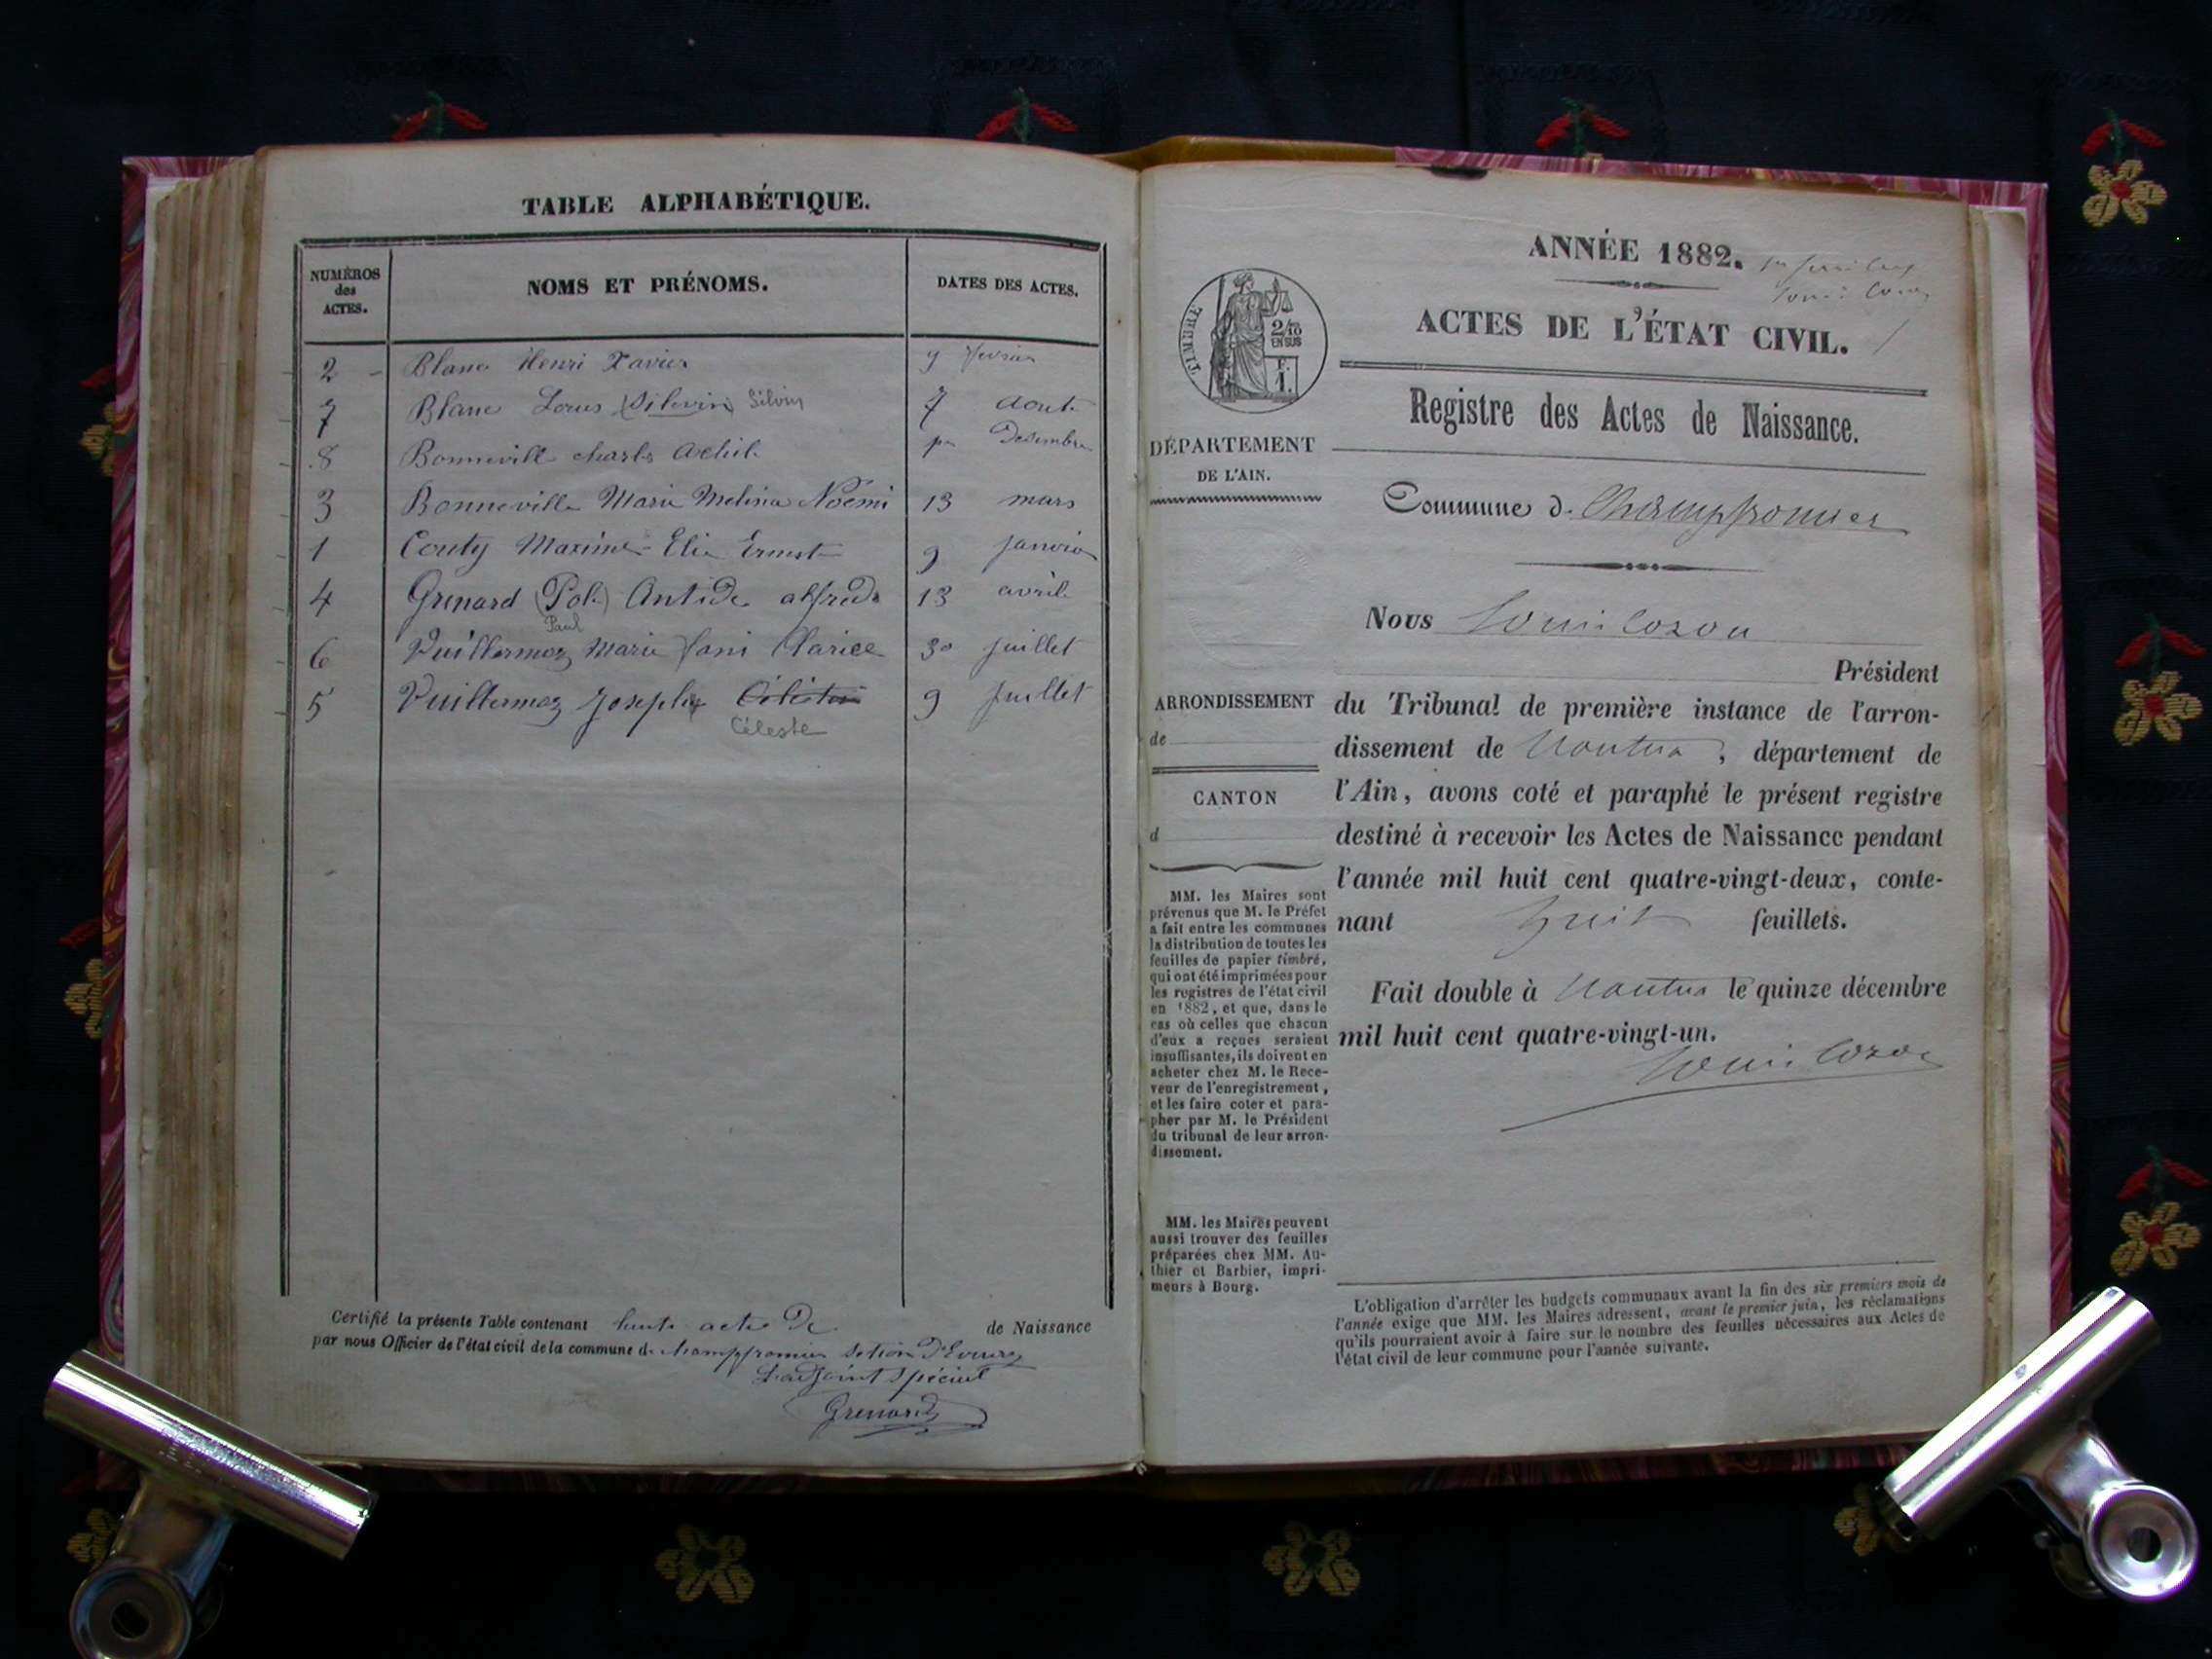 TABLE ALPHABÉTIQUE.
NUMÉROS
des
ACTES.
NOMS ET PRÉNOMS.
DATES DES ACTES.
2 Blanc Henri Xavier 9 fevrier
7 Blanc Louis (Silevin) Silvin 7 aout
8 Bonneville charles Achile 1er Desembre
3 Bonneville Marie Melina Noëmi 13 mars
1 Couty Maxime Elie Ernest 9 janvier
4 Grenard (Pol) Antide alfred 13 avril
Paul
6 Vuillermoz Marie fani Clarice 30 juillet
5 Vuillermoz Joseph Célestin 9 Juillet
Céleste
Certifié la présente Table contenant huits acte De de Naissance
par nous Officier de l'état civil de la commune de champfromier
L'adjoint Spécial
Grenard
ANNÉE 1882.
ACTES DE L'ÉTAT CIVIL.
TIMBRE
2/10
EN SUS
F.
1.
Registre des Actes de Naissance.
DÉPARTEMENT
DE L'AIN.
Commune d. Champfromier
Nous
Président
du Tribunal de première instance de l'arron-
dissement de Nantua, département de
l'Ain, avons coté et paraphé le présent registre
destiné à recevoir les Actes de Naissance pendant
l'année mil huit cent quatre-vingt-deux, conte-
nant huit feuillets.
Fait double à Nantua le quinze décembre
mil huit cent quatre-vingt-un.
ARRONDISSEMENT
de
CANTON
d
MM. les Maires sont
prévenus que M. le Préfet
a fait entre les communes
la distribution de toutes les
feuilles de papier timbré,
qui ont été imprimées pour
les registres de l'état civil
en 1882, et que, dans le
cas où celles que chacun
d'eux a reçues seraient
insuffisantes, ils doivent en
acheter chez M. le Rece-
veur de l'enregistrement,
et les faire coter et para-
pher par M. le Président
du tribunal de leur arron-
dissement.
MM. les Maires peuvent
aussi trouver des feuilles
préparées chez MM. Au-
thier et Barbier, impri-
meurs à Bourg.
L'obligation d'arrêter les budgets communaux avant la fin des six premiers mois de
l'année exige que MM. les Maires adressent, avant le premier juin, les réclamations
qu'ils pourraient avoir à faire sur le nombre des feuilles nécessaires aux Actes de
l'état civil de leur commune pour l'année suivante.